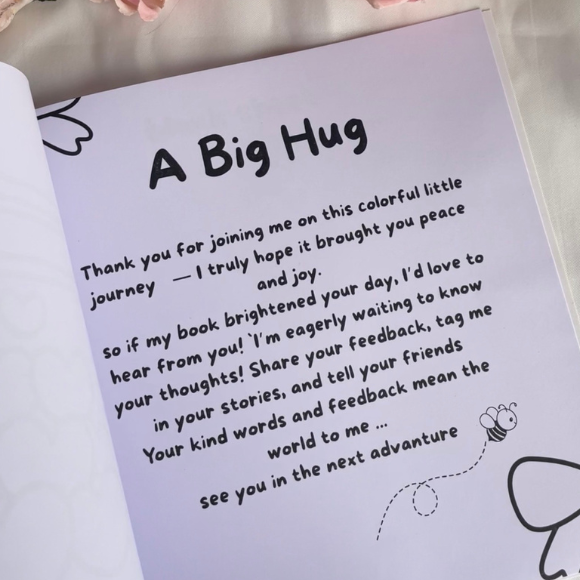 A Big Hug
Thank you for joining me on this colorful little
journey — I truly hope it brought you peace
and joy.
so if my book brightened your day, I'd love to
hear from you! `I'm eagerly waiting to know
your thoughts! Share your feedback, tag me
in your stories, and tell your friends
Your kind words and feedback mean the
world to me ...
see you in the next advanture